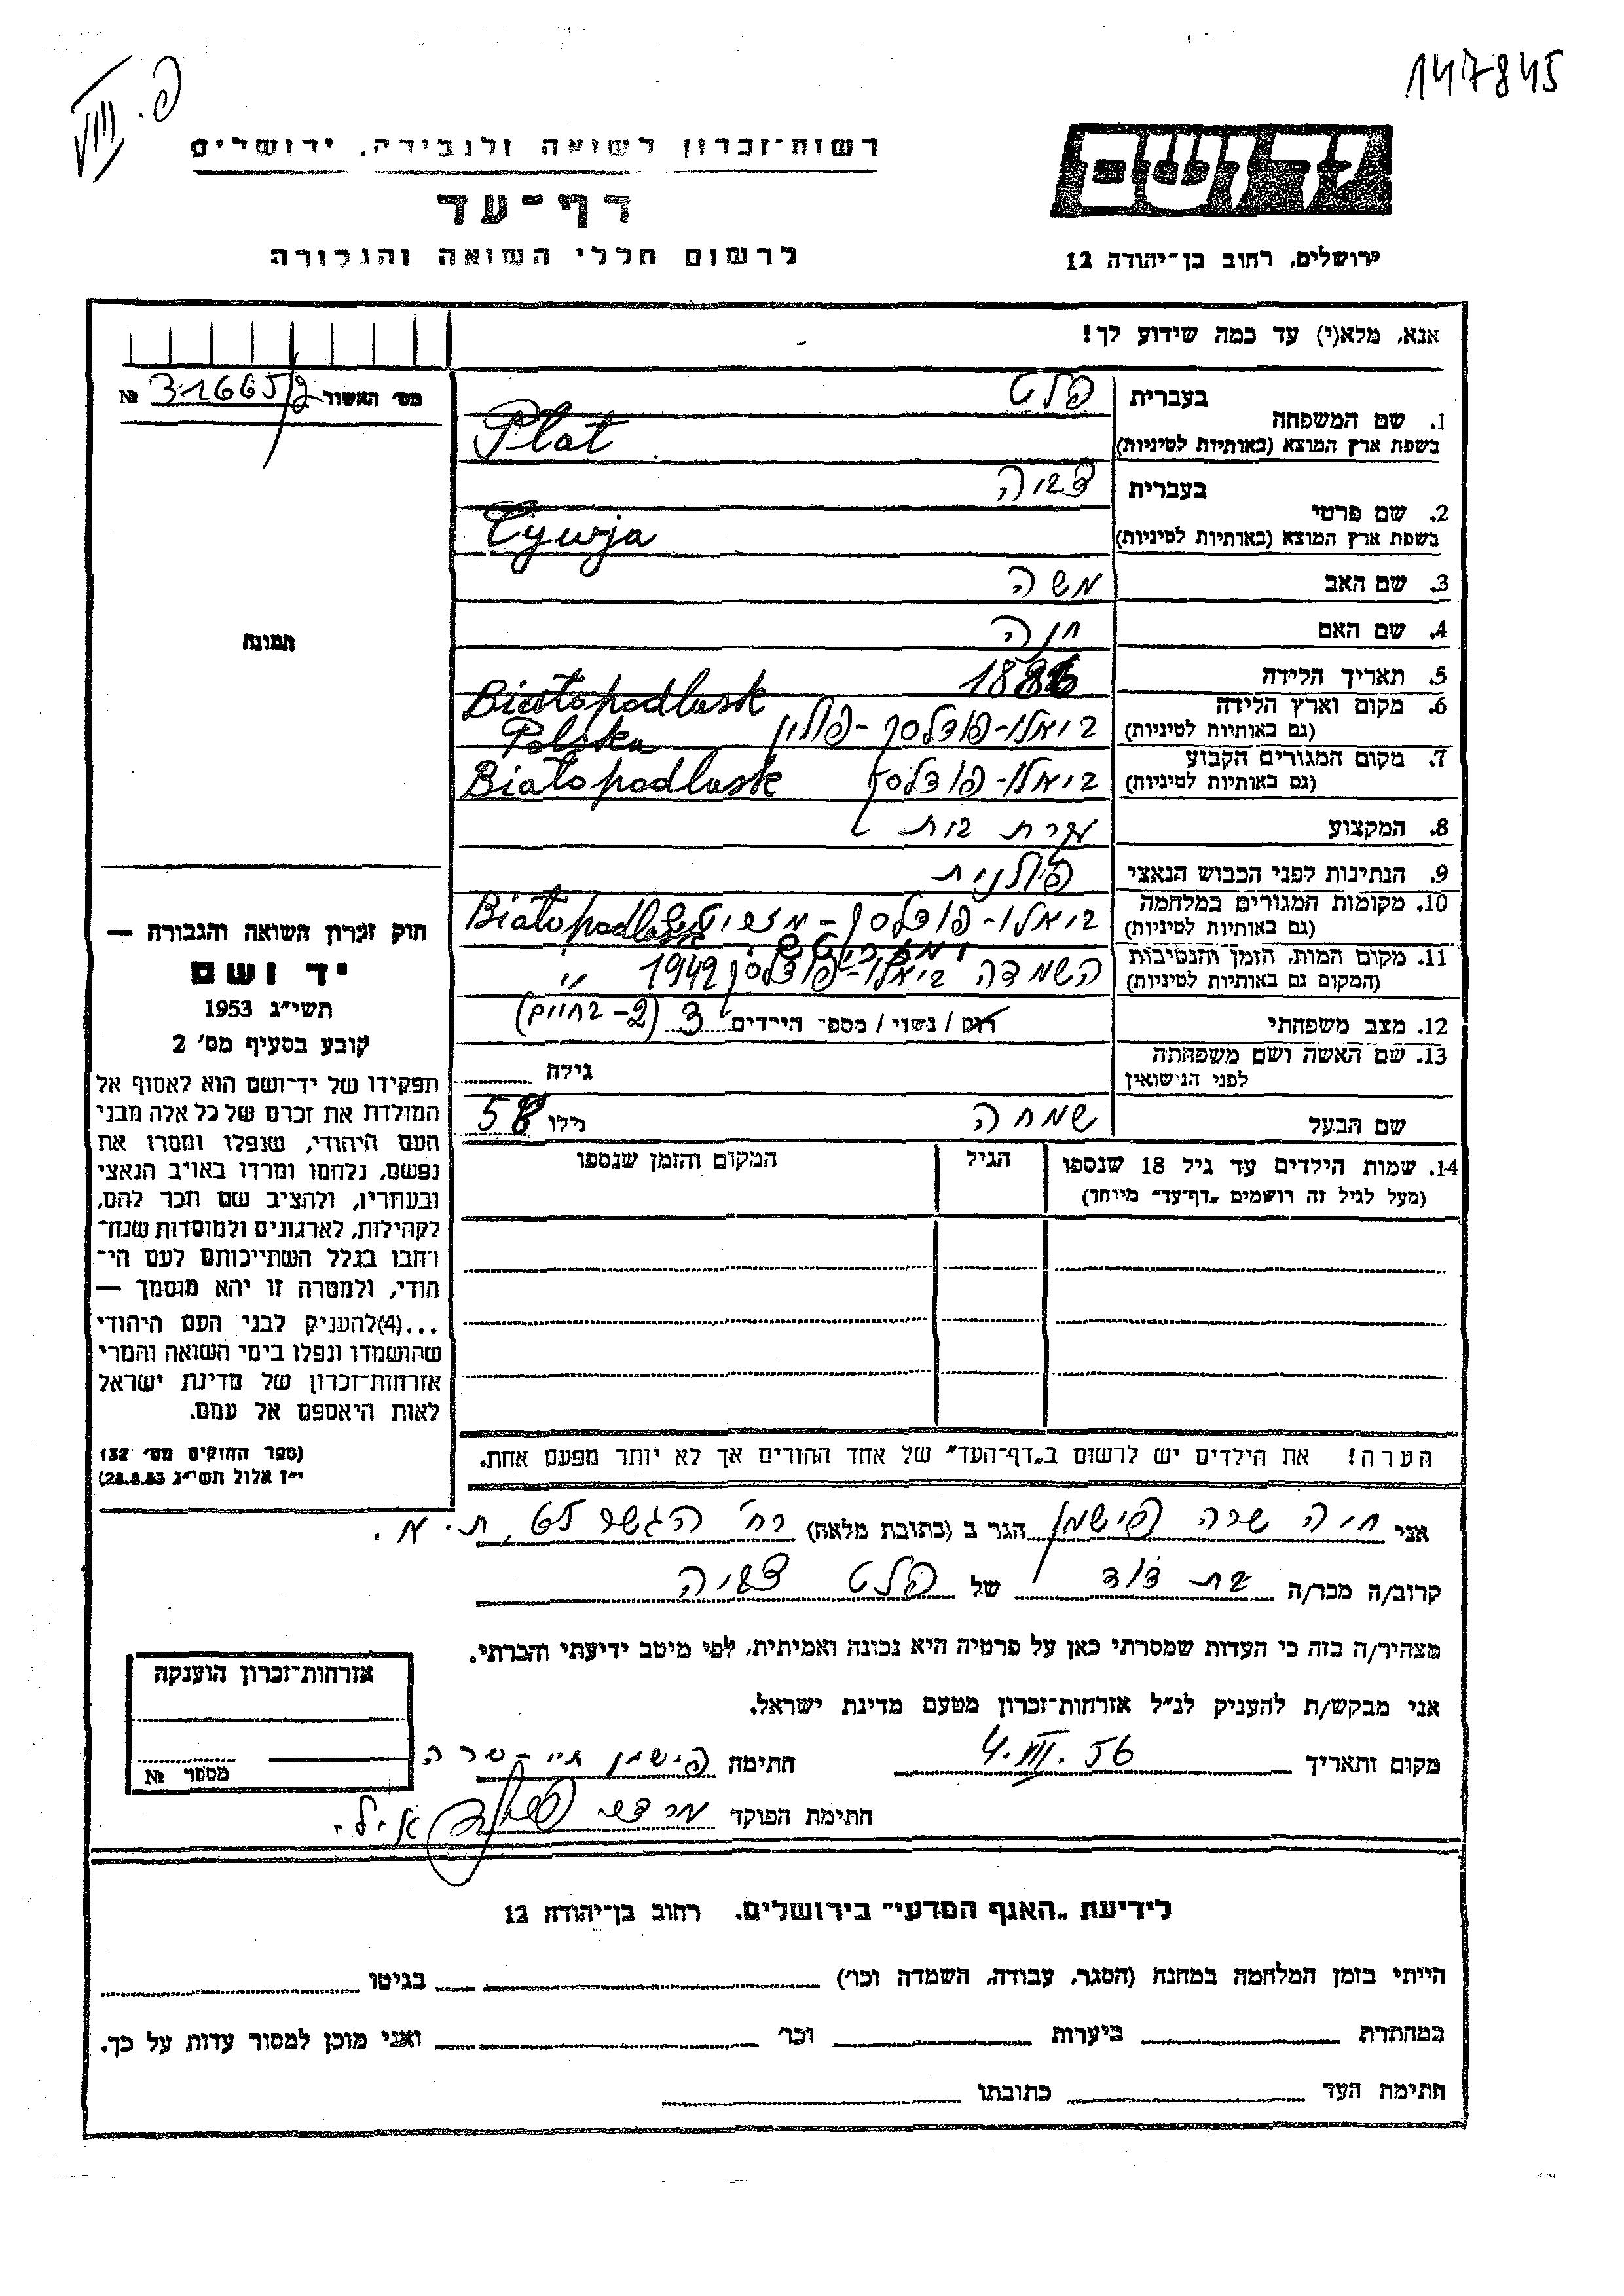 147845
פ. VIII
רשות־זכרון לשואה ולגבורה, ירושלים
דף־עד
לרשום חללי השואה והגבורה
יד ושם
ירושלים, רחוב בן־יהודה 12
אנא, מלא(י) עד כמה שידוע לך!
מס׳ האשור № 31665/2
1. שם המשפחה בעברית פלט
בשפת ארץ המוצא (באותיות לטיניות) Plat
2. שם פרטי בעברית צביה
בשפת ארץ המוצא (באותיות לטיניות) Cywja
3. שם האב משה
4. שם האם חנה
5. תאריך הלידה
6. מקום וארץ הלידה (גם באותיות לטיניות) ביאלו-פודלסק-פולין Biatopodlask Polska
7. מקום המגורים הקבוע (גם באותיות לטיניות) ביאלו-פודלסק Biatopodlask
8. המקצוע עקרת בית
9. הנתינות לפני הכבוש הנאצי פולנית
10. מקומות המגורים במלחמה (גם באותיות לטיניות) ביאלו-פודלסק- Biatopodlask
11. מקום המות, הזמן והנסיבות (המקום גם באותיות לטיניות) השמדה ביאלו-פודלסק 1942
12. מצב משפחתי רוק / נשוי / מספר הילדים 3 (2- בחיים)
13. שם האשה ושם משפחתה לפני הנישואין גילה
שם הבעל שמחה גילו 58
14. שמות הילדים עד גיל 18 שנספו הגיל המקום והזמן שנספו
(מעל לגיל זה רושמים „דף־עד״ מיוחד)
הערה! את הילדים יש לרשום ב„דף־העד״ של אחד ההורים אך לא יותר מפעם אחת.
תמונה
חוק זכרון השואה והגבורה —
יד ושם
תשי״ג 1953
קובע בסעיף מס׳ 2
תפקידו של יד־ושם הוא לאסוף אל
המולדת את זכרם של כל אלה מבני
העם היהודי, שנפלו ומסרו את
נפשם, נלחמו ומרדו באויב הנאצי
ובעוזריו, ולהציב שם וזכר להם,
לקהילות, לארגונים ולמוסדות שנח־
רבו בגלל השתייכותם לעם הי־
הודי, ולמטרה זו יהא מוסמך —
...(4)להעניק לבני העם היהודי
שהושמדו ונפלו בימי השואה והמרי
אזרחות־זכרון של מדינת ישראל
לאות היאספם אל עמם.
(ספר החוקים מס׳ 132
י״ז אלול תשי״ג 28.8.53)
אני חיה שרה פישמן הגר ב (כתובת מלאה) רח׳ הגשר
קרוב/ה מכר/ה בת דוד של פלט צביה
מצהיר/ה בזה כי העדות שמסרתי כאן על פרטיה היא נכונה ואמיתית, לפי מיטב ידיעתי והכרתי.
אני מבקש/ת להעניק לנ״ל אזרחות־זכרון מטעם מדינת ישראל.
מקום ותאריך 56 חתימה פישמן
חתימת הפוקד
אזרחות־זכרון הוענקה
מספר №
לידיעת „האגף המדעי״ בירושלים, רחוב בן־יהודה 12
הייתי בזמן המלחמה במחנה (הסגר, עבודה, השמדה וכו׳) בגיטו
במחתרת ביערות וכו׳ ואני מוכן למסור עדות על כך.
חתימת העד כתובתו